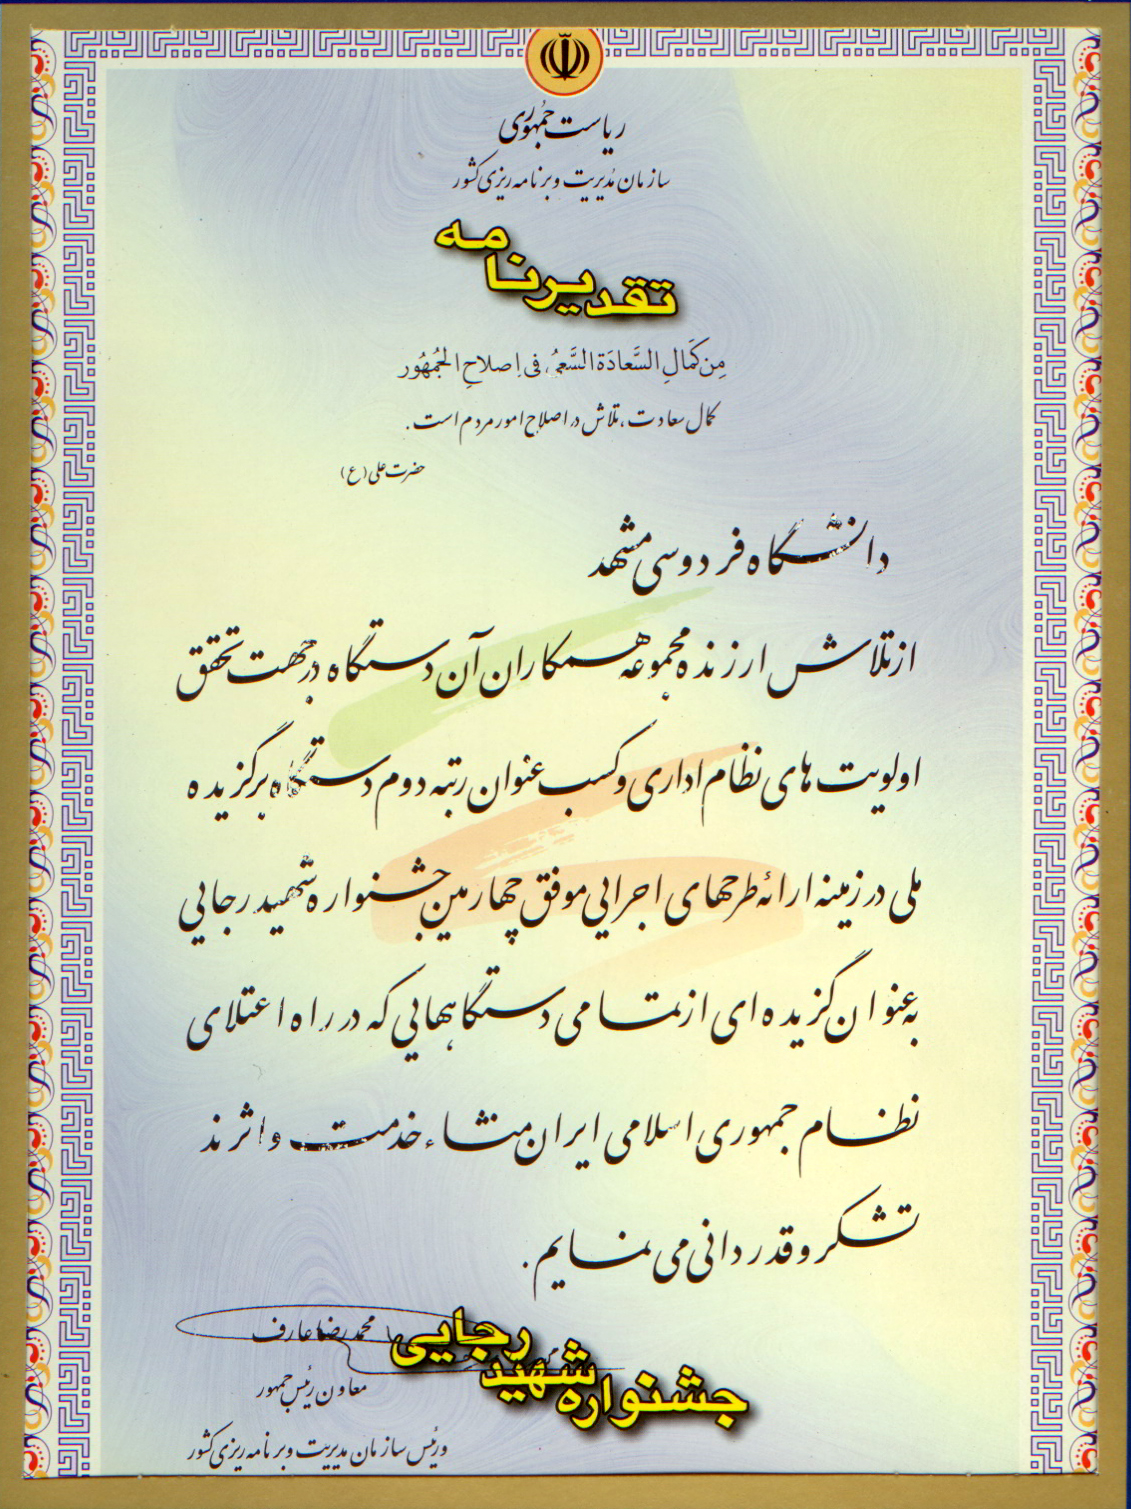 ریاست جمهوری
سازمان مدیریت و برنامه ریزی کشور
تقدیرنامه
مِن کَمالِ السَّعادَة السَّعیُ فی اِصلاحِ الجُمهُور
کمال سعادت، تلاش در اصلاح امور مردم است.
حضرت علی (ع)
دانشگاه فردوسی مشهد
از تلاش ارزنده مجموعه همکاران آن دستگاه در جهت تحقق
اولویت های نظام اداری و کسب عنوان رتبه دوم دستگاه برگزیده
ملی در زمینه ارائه طرحهای اجرایی موفق چهارمین جشنواره شهید رجایی
به عنوان گزیده ای از تمامی دستگاههایی که در راه اعتلای
نظام جمهوری اسلامی ایران منشاء خدمت و اثرند
تشکر و قدردانی می نمایم.
محمدرضا عارف
معاون رئیس جمهور
و رئیس سازمان مدیریت و برنامه ریزی کشور
جشنواره شهید رجایی